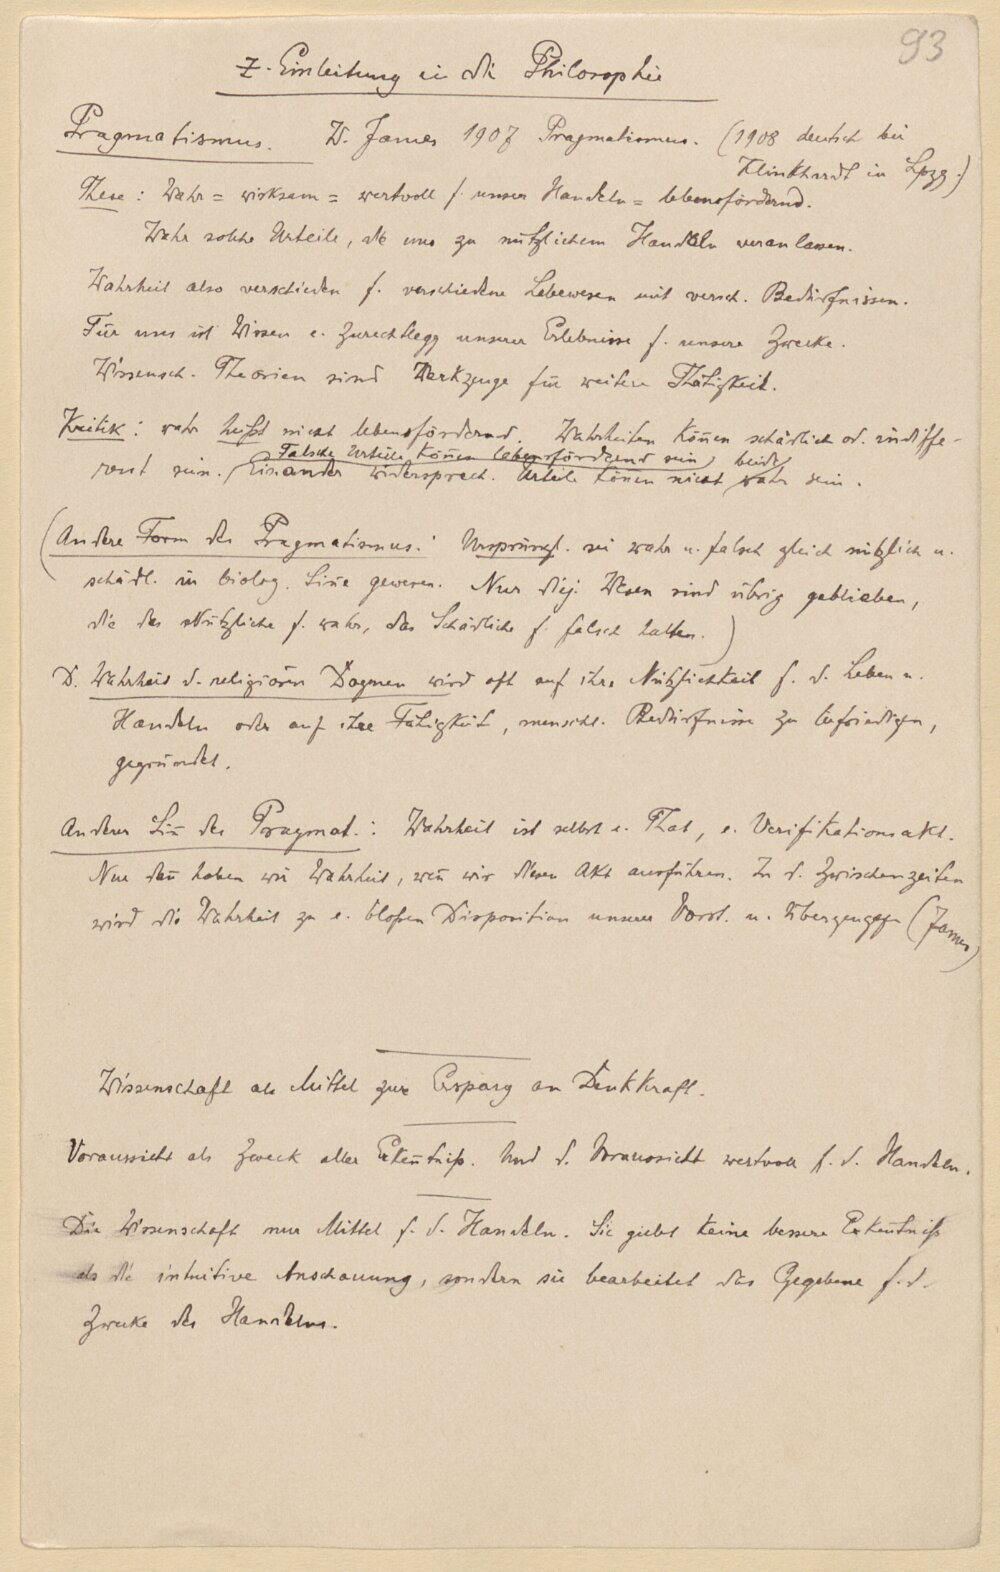 93
Z. Einleitung in die Philosophie
Pragmatismus. W. James 1907 Pragmatismus. (1908 deutsch bei
Klinkhardt in Lpzg.)
These: Wahr = wirksam = wertvoll f. unser Handeln = lebensfördernd.
Wahr solche Urteile, die uns zu nützlichem Handeln veranlassen.
Wahrheit also verschieden f. verschiedene Lebewesen mit versch. Bedürfnissen.
Für uns ist Wissen e. Zurechtlegg unserer Erlebnisse f. unsere Zwecke.
Wissensch. Theorien sind Werkzeuge für weitere Thätigkeit.
Kritik: wahr heißt nicht lebensfördernd. Wahrheiten können schädlich od. indiffe-
rent sein. (Falsche Urteile können lebensfördernd sein) Einander widersprech. Urteile können nicht beide wahr sein.
(Andere Form des Pragmatismus: Ursprüngl. sei wahr u. falsch gleich nützlich u.
schädl. in biolog. Sinne gewesen. Nur diej. Wesen sind übrig geblieben,
die das Nützliche f. wahr, das Schädliche f. falsch halten.)
D. Wahrheit d. religiösen Dogmen wird oft auf ihre Nützlichkeit f. d. Leben u.
Handeln oder auf ihre Fähigkeit, menschl. Bedürfnisse zu befriedigen,
gegründet.
Anderer Sinn des Pragmat.: Wahrheit ist selbst e. That, e. Verifikationsakt.
Nur dann haben wir Wahrheit, wenn wir diesen Akt ausführen. In d. Zwischenzeiten
wird die Wahrheit zu e. bloßen Disposition unserer Vorst. u. Überzeuggn (James)
Wissenschaft als Mittel zur Ersparg an Denkkraft.
Voraussicht als Zweck aller Erkenntniß. Und d. Voraussicht wertvoll f. d. Handeln.
Die Wissenschaft nur Mittel f. d. Handeln. Sie giebt keine bessere Erkenntniß
als die intuitive Anschauung, sondern sie bearbeitet das Gegebene f. d.
Zwecke des Handelns.